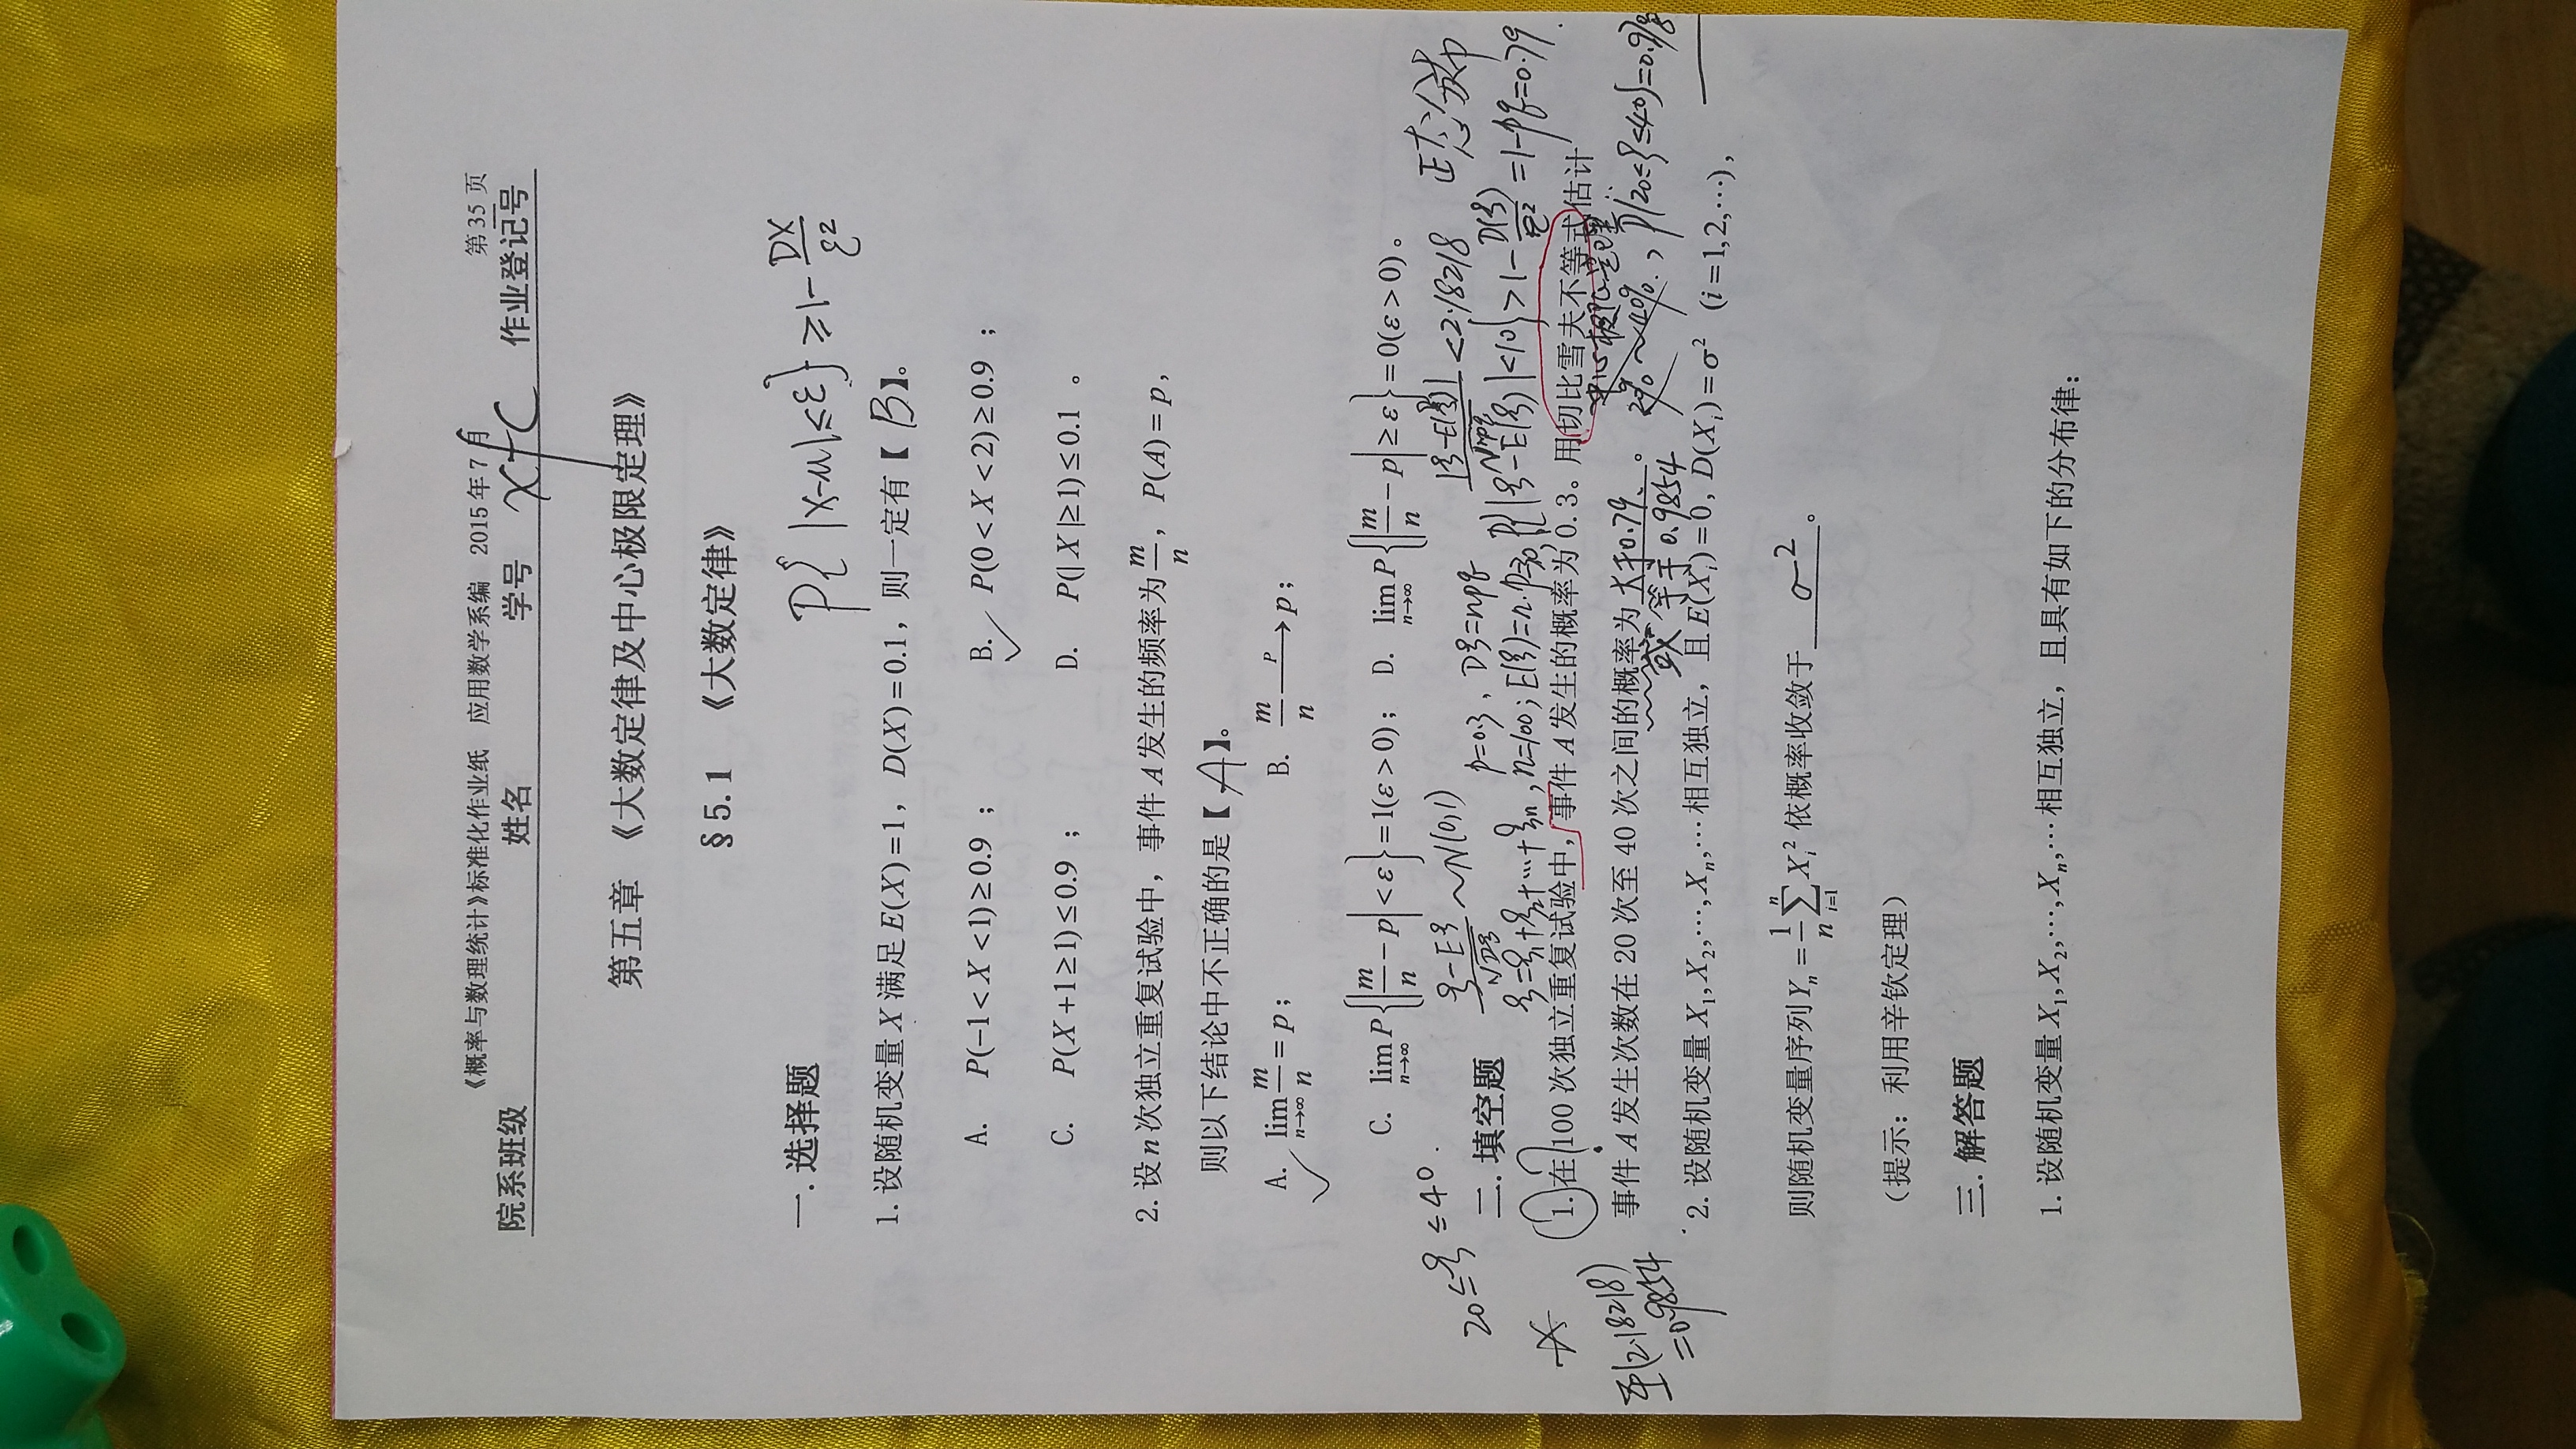 《概率与数理统计》标准化作业纸 应用数学系编 2015年7月 第35页
院系班级 姓名 学号 xfc 作业登记号
第五章 《大数定律及中心极限定理》
§5.1 《大数定律》
一.选择题
P{|X-μ|≤ε}≥1-DX/ε²
1.设随机变量X满足E(X)=1，D(X)=0.1，则一定有【B】。
A. P(-1<X<1)≥0.9； B. P(0<X<2)≥0.9；
C. P(X+1≥1)≤0.9； D. P(|X|≥1)≤0.1。
2.设n次独立重复试验中，事件A发生的频率为m/n，P(A)=p，
则以下结论中不正确的是【A】。
A. lim_{n→∞} m/n = p； B. m/n —P→ p；
C. lim_{n→∞} P{|m/n - p|<ε}=1(ε>0)； D. lim_{n→∞} P{|m/n - p|≥ε}=0(ε>0)。
20≤ξ≤40.
(ξ-Eξ)/√Dξ ~N(0,1) |ξ-E(ξ)|/√npq <2.18218 正态分布
二.填空题 p=0.3, Dξ=npq
ξ=ξ₁+ξ₂+…+ξn, n=100; E(ξ)=n·p=30, P{|ξ-E(ξ)|<10}>1-D(ξ)/ε²=1-pq=0.79.
1.在100次独立重复试验中，事件A发生的概率为0.3。用切比雪夫不等式估计
中心极限定理
事件A发生次数在20次至40次之间的概率为大于0.79.。 20%~40%., P{20≤ξ≤40}=0.978
或等于0.9854
Φ(2.18218)
=0.9854
2.设随机变量X₁,X₂,…,Xₙ,…相互独立，且E(Xᵢ)=0, D(Xᵢ)=σ² (i=1,2,…)，
则随机变量序列Yₙ=1/n ∑_{i=1}^{n} Xᵢ² 依概率收敛于 σ² 。
（提示：利用辛钦定理）
三.解答题
1.设随机变量X₁,X₂,…,Xₙ,…相互独立，且具有如下的分布律：